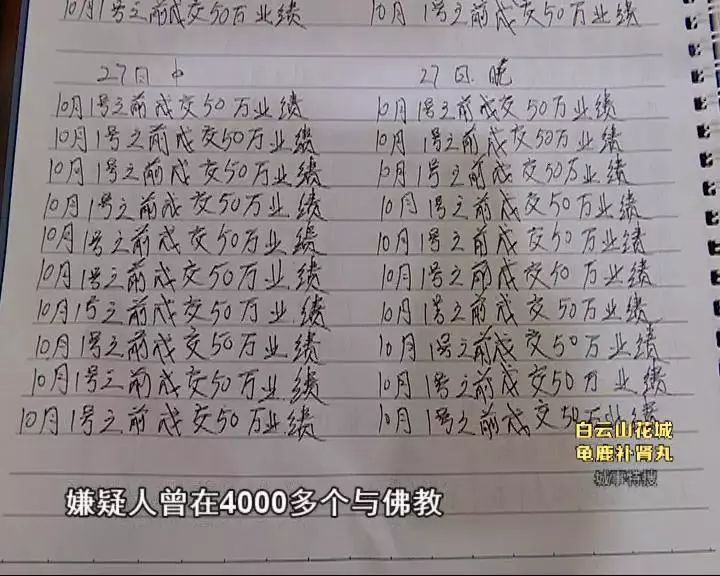 10月1号之前成交50万业绩 10月1号之前成交50万业绩
27日 中 27日 晚
10月1号之前成交50万业绩 10月1号之前成交50万业绩
10月1号之前成交50万业绩 10月1号之前成交50万业绩
10月1号之前成交50万业绩 10月1号之前成交50万业绩
10月1号之前成交50万业绩 10月1号之前成交50万业绩
10月1号之前成交50万业绩 10月1号之前成交50万业绩
10月1号之前成交50万业绩 10月1号之前成交50万业绩
10月1号之前成交50万业绩 10月1号之前成交50万业绩
10月1号之前成交50万业绩 10月1号之前成交50万业绩
10月1号之前成交50万业绩 10月1号之前成交50万业绩
10月1号之前成交50万业绩 10月1号之前成交50万业绩
白云山花城
龟鹿补肾丸
城事特搜
嫌疑人曾在4000多个与佛教